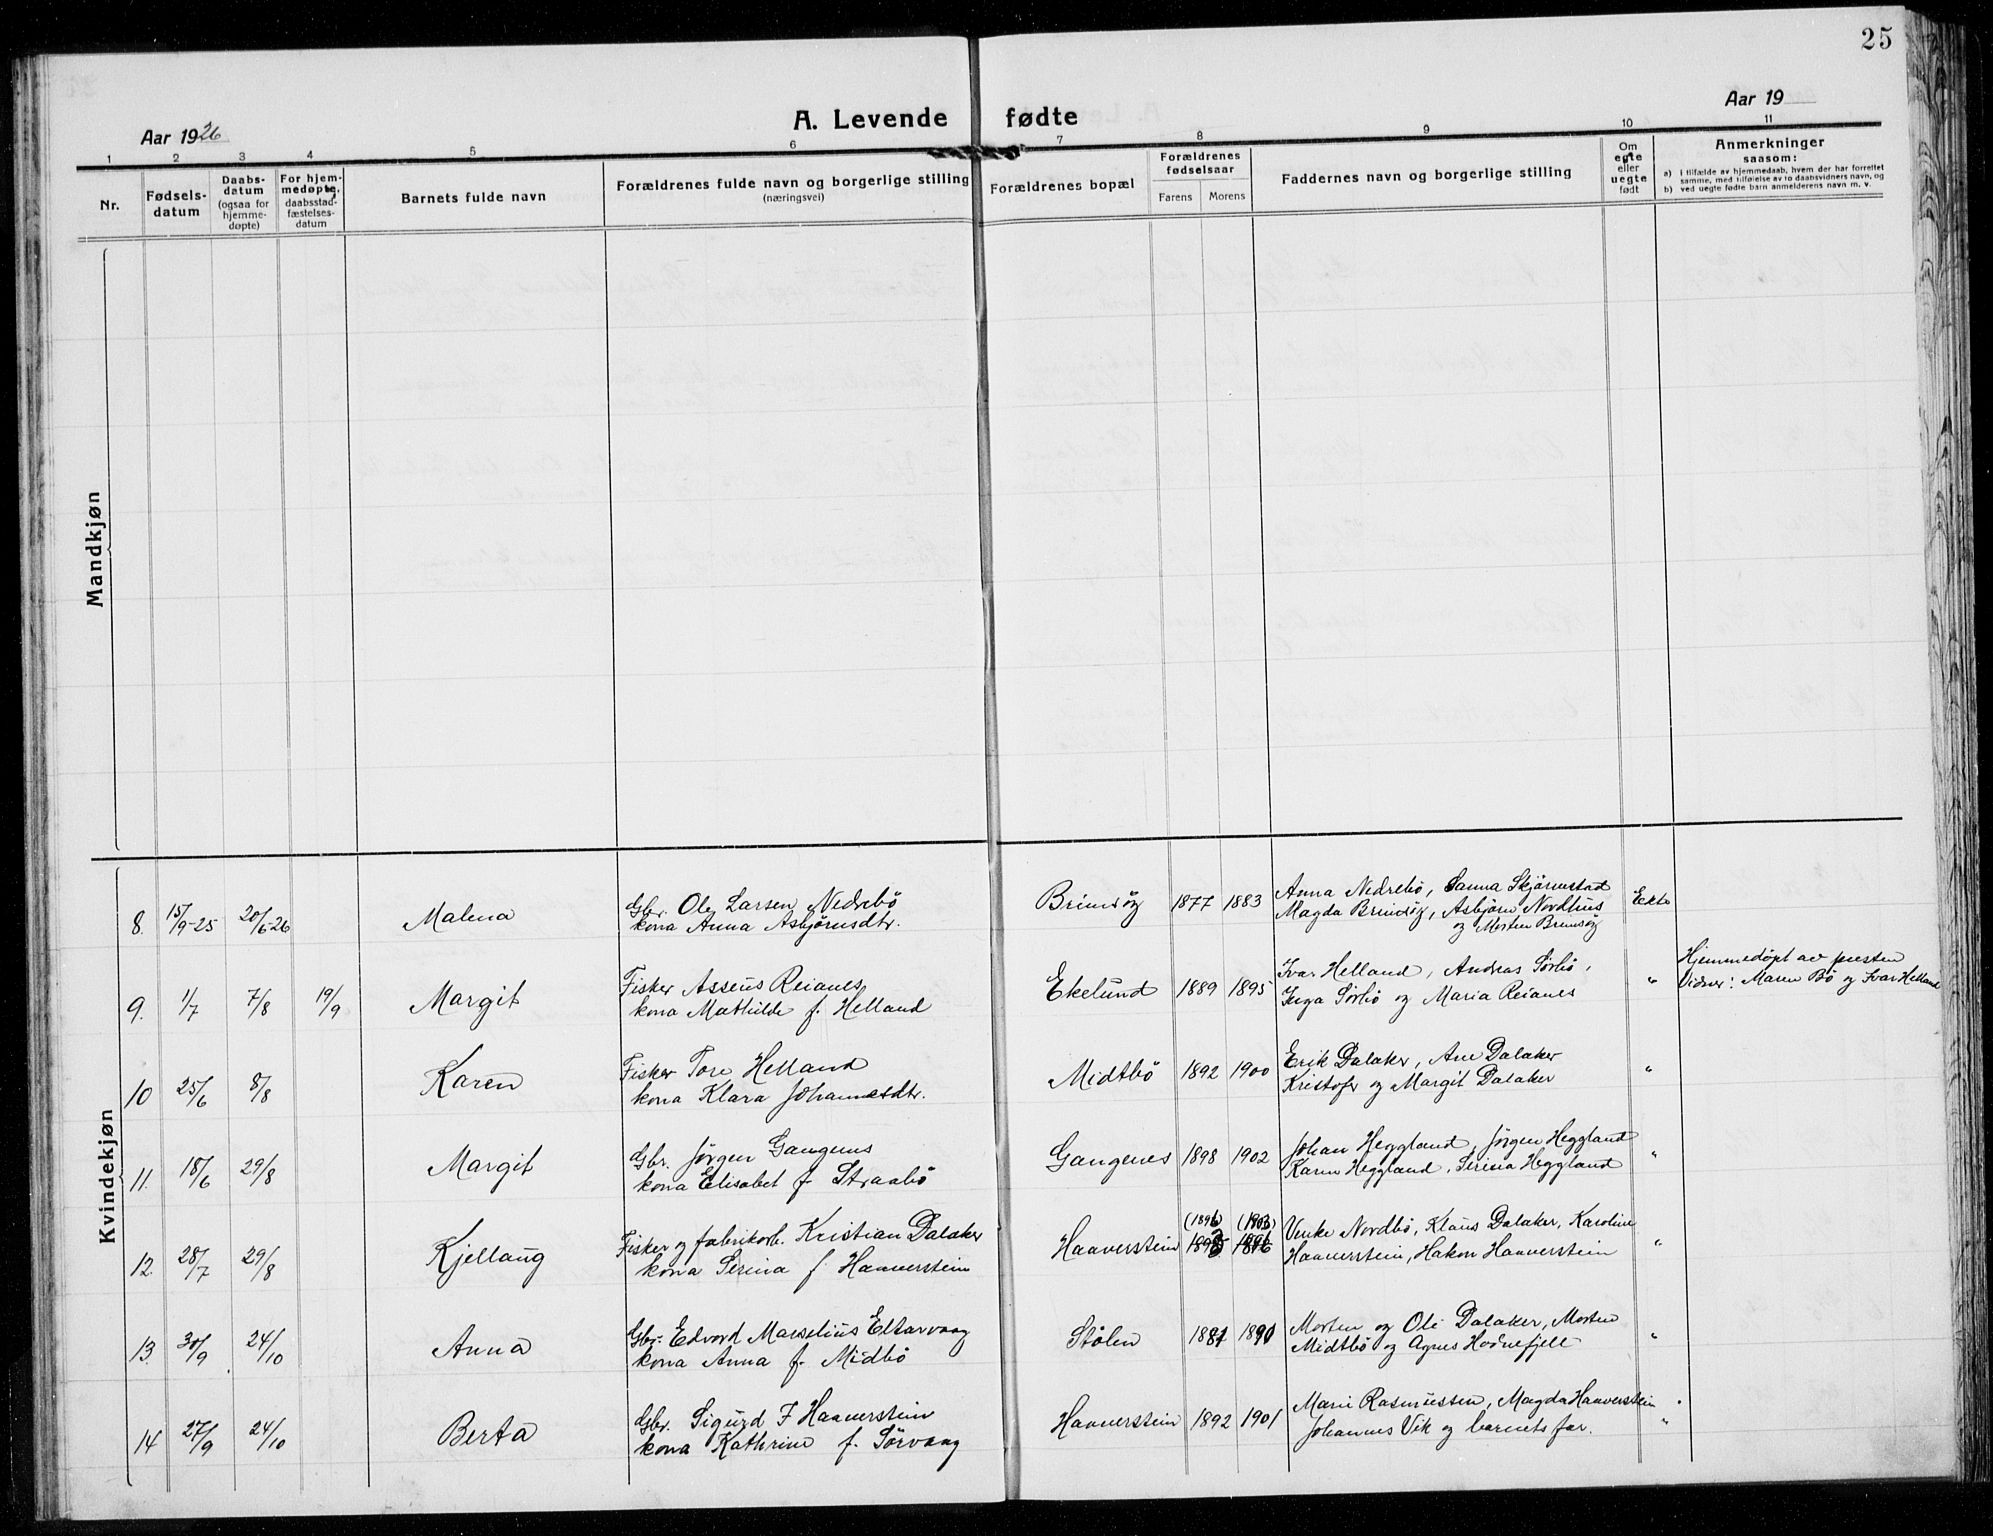 25
Aar 1926
A. Levende fødte
Aar 19
1 2 3 4 5 6 7 8 9 10 11
Nr.
Fødsels-
datum
Daabs-
datum
(ogsaa for
hjemme-
døpte)
For hjem-
medøpte,
daabsstad-
fæstelses-
datum
Barnets fulde navn
Forældrenes fulde navn og borgerlige stilling
(næringsvei)
Forældrenes bopæl
Forældrenes
fødselsaar
Farens Morens
Faddernes navn og borgerlige stilling
Om
egte
eller
uegte
født
Anmerkninger
saasom:
a) i tilfælde av hjemmedaab, hvem der har forrettet
samme, med tilføielse av to daabsvidners navn, og
b) ved uegte fødte barn anmelderens navn m. v.
Mandkjøn
Kvindekjøn
8. 15/9-25 20/6-26 Malena
Gbr. Ole Larsen Nedrebö
kona Anna Asbjörnsdtr.
Brimsög 1877 1883
Anna Nedrebö, Sanna Skjörnstad
Magda Brimsög, Asbjörn Nordhus
og Morten Brimsög
Ekte
9. 1/7 7/8 19/9 Margit
Fisker Asseus Reianes
kona Mathilde f. Helland
Ekelund 1889 1895
Ivar Helland, Andreas Sörbö,
Inga Sörbö og Maria Reianes
"
Hjemmedöpt av presten
Vidner: Maren Bö og Ivar Helland
10 25/6 8/8 Karen
Fisker Tore Helland
kona Klara Johannesdtr.
Midtbö 1892 1900
Erik Dalaker, Ane Dalaker
Kristofer og Margit Dalaker
"
11. 18/6 29/8 Margit
Gbr. Jörgen Gangenes
kona Elisabet f. Straabö
Gangenes 1898 1902
Johan Heggland, Jörgen Heggland
Karen Heggland, Serina Heggland
"
12. 28/7 29/8 Kjellaug
Fisker og fabrikarb. Kristian Dalaker
kona Serina f. Haaverstein
Haaverstein
(1896)
Nordbö, Klaus Dalaker, Karoline
Haaverstein, Hakon Haaverstein
"
13. 30/9 24/10 Anna
Gbr. Edvard Marselius Eltarvaag
kona Anna f. Midbö
Stölen 1881 1890
Morten og Ole Dalaker, Morten
Midtbö og Agnes Hodnefjell
"
14 27/9 24/10 Berta
Gbr. Sigurd F Haaverstein
kona Kathrine f. Sörvaag
Haaverstein 1892 1901
Marie Rasmussen, Magda Haaverstein
Johannes Vik og barnets far.
"